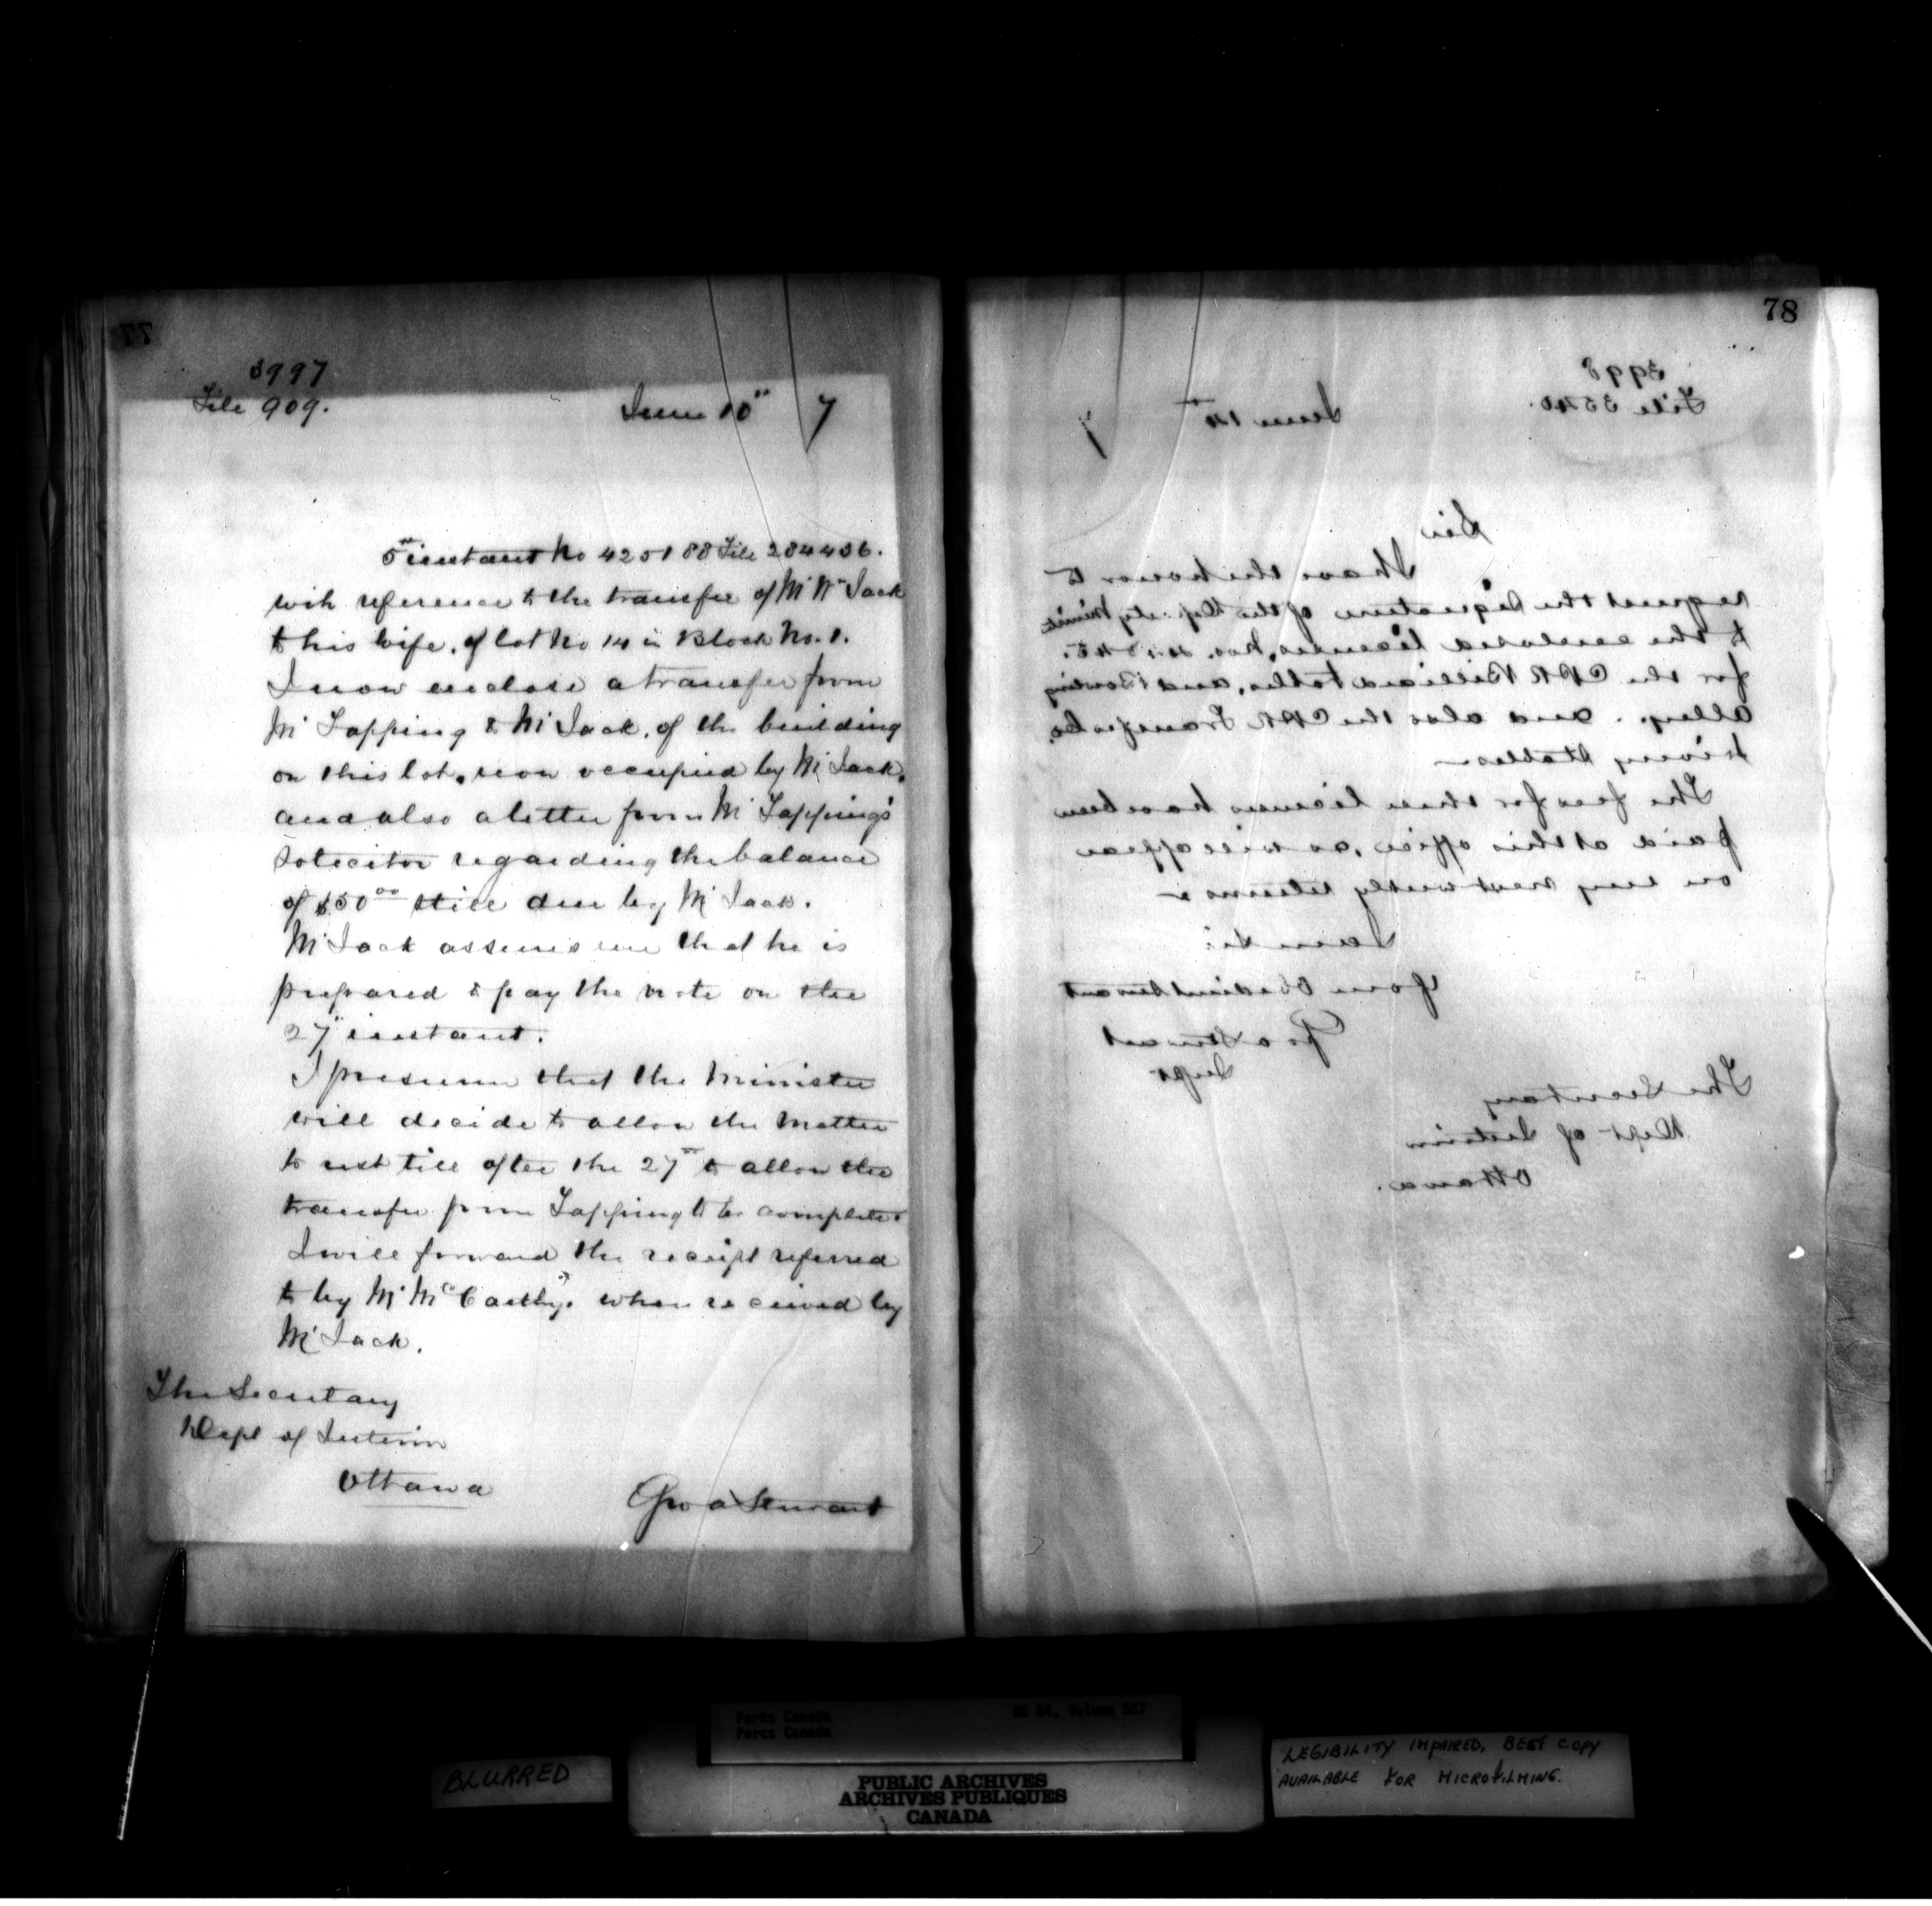 77
3997
File 909.
June 10" 7
5th instant No 425188 File 284436.
with reference to the transfer of Mr Wm Jack
to his wife, of lot No 14 in Block No. 1.
I now enclose a transfer from
Mr Topping to Mr Jack, of the building
on this lot, now occupied by Mr Jack,
and also a letter from Mr Topping's
Solicitor regarding the balance
of $50 00 still due by Mr Jack.
Mr Jack assures me that he is
prepared to pay the note on the
27" instant.
I presume that the Minister
will decide to allow the matter
to rest till after the 27th to allow the
transfer from Topping to be complete.
I will forward the receipt referred
to by Mr McCarthy. when received by
Mr Jack.
The Secretary
Dept of Interior
Ottawa
Geo A Stewart
78
3998
File 3540.
June 14th 7
Sir
I have the honor to
request the signature of the Deputy Minister
to the enclosed licenses, Nos.
for the CPR Billiard tables, and Bowling
alley. and also the CPR Transfer Co.
Livery Stables
The fees for these licenses have been
paid at this office, as will appear
on my next weekly returns
I am Sir
Your Obedient Servant
Geo A Stewart
Supt
The Secretary
Dept of Interior
Ottawa.
Parks Canada
Parcs Canada
RG 84, Volume 667
BLURRED
PUBLIC ARCHIVES
ARCHIVES PUBLIQUES
CANADA
LEGIBILITY IMPAIRED, BEST COPY
AVAILABLE FOR MICROFILMING.